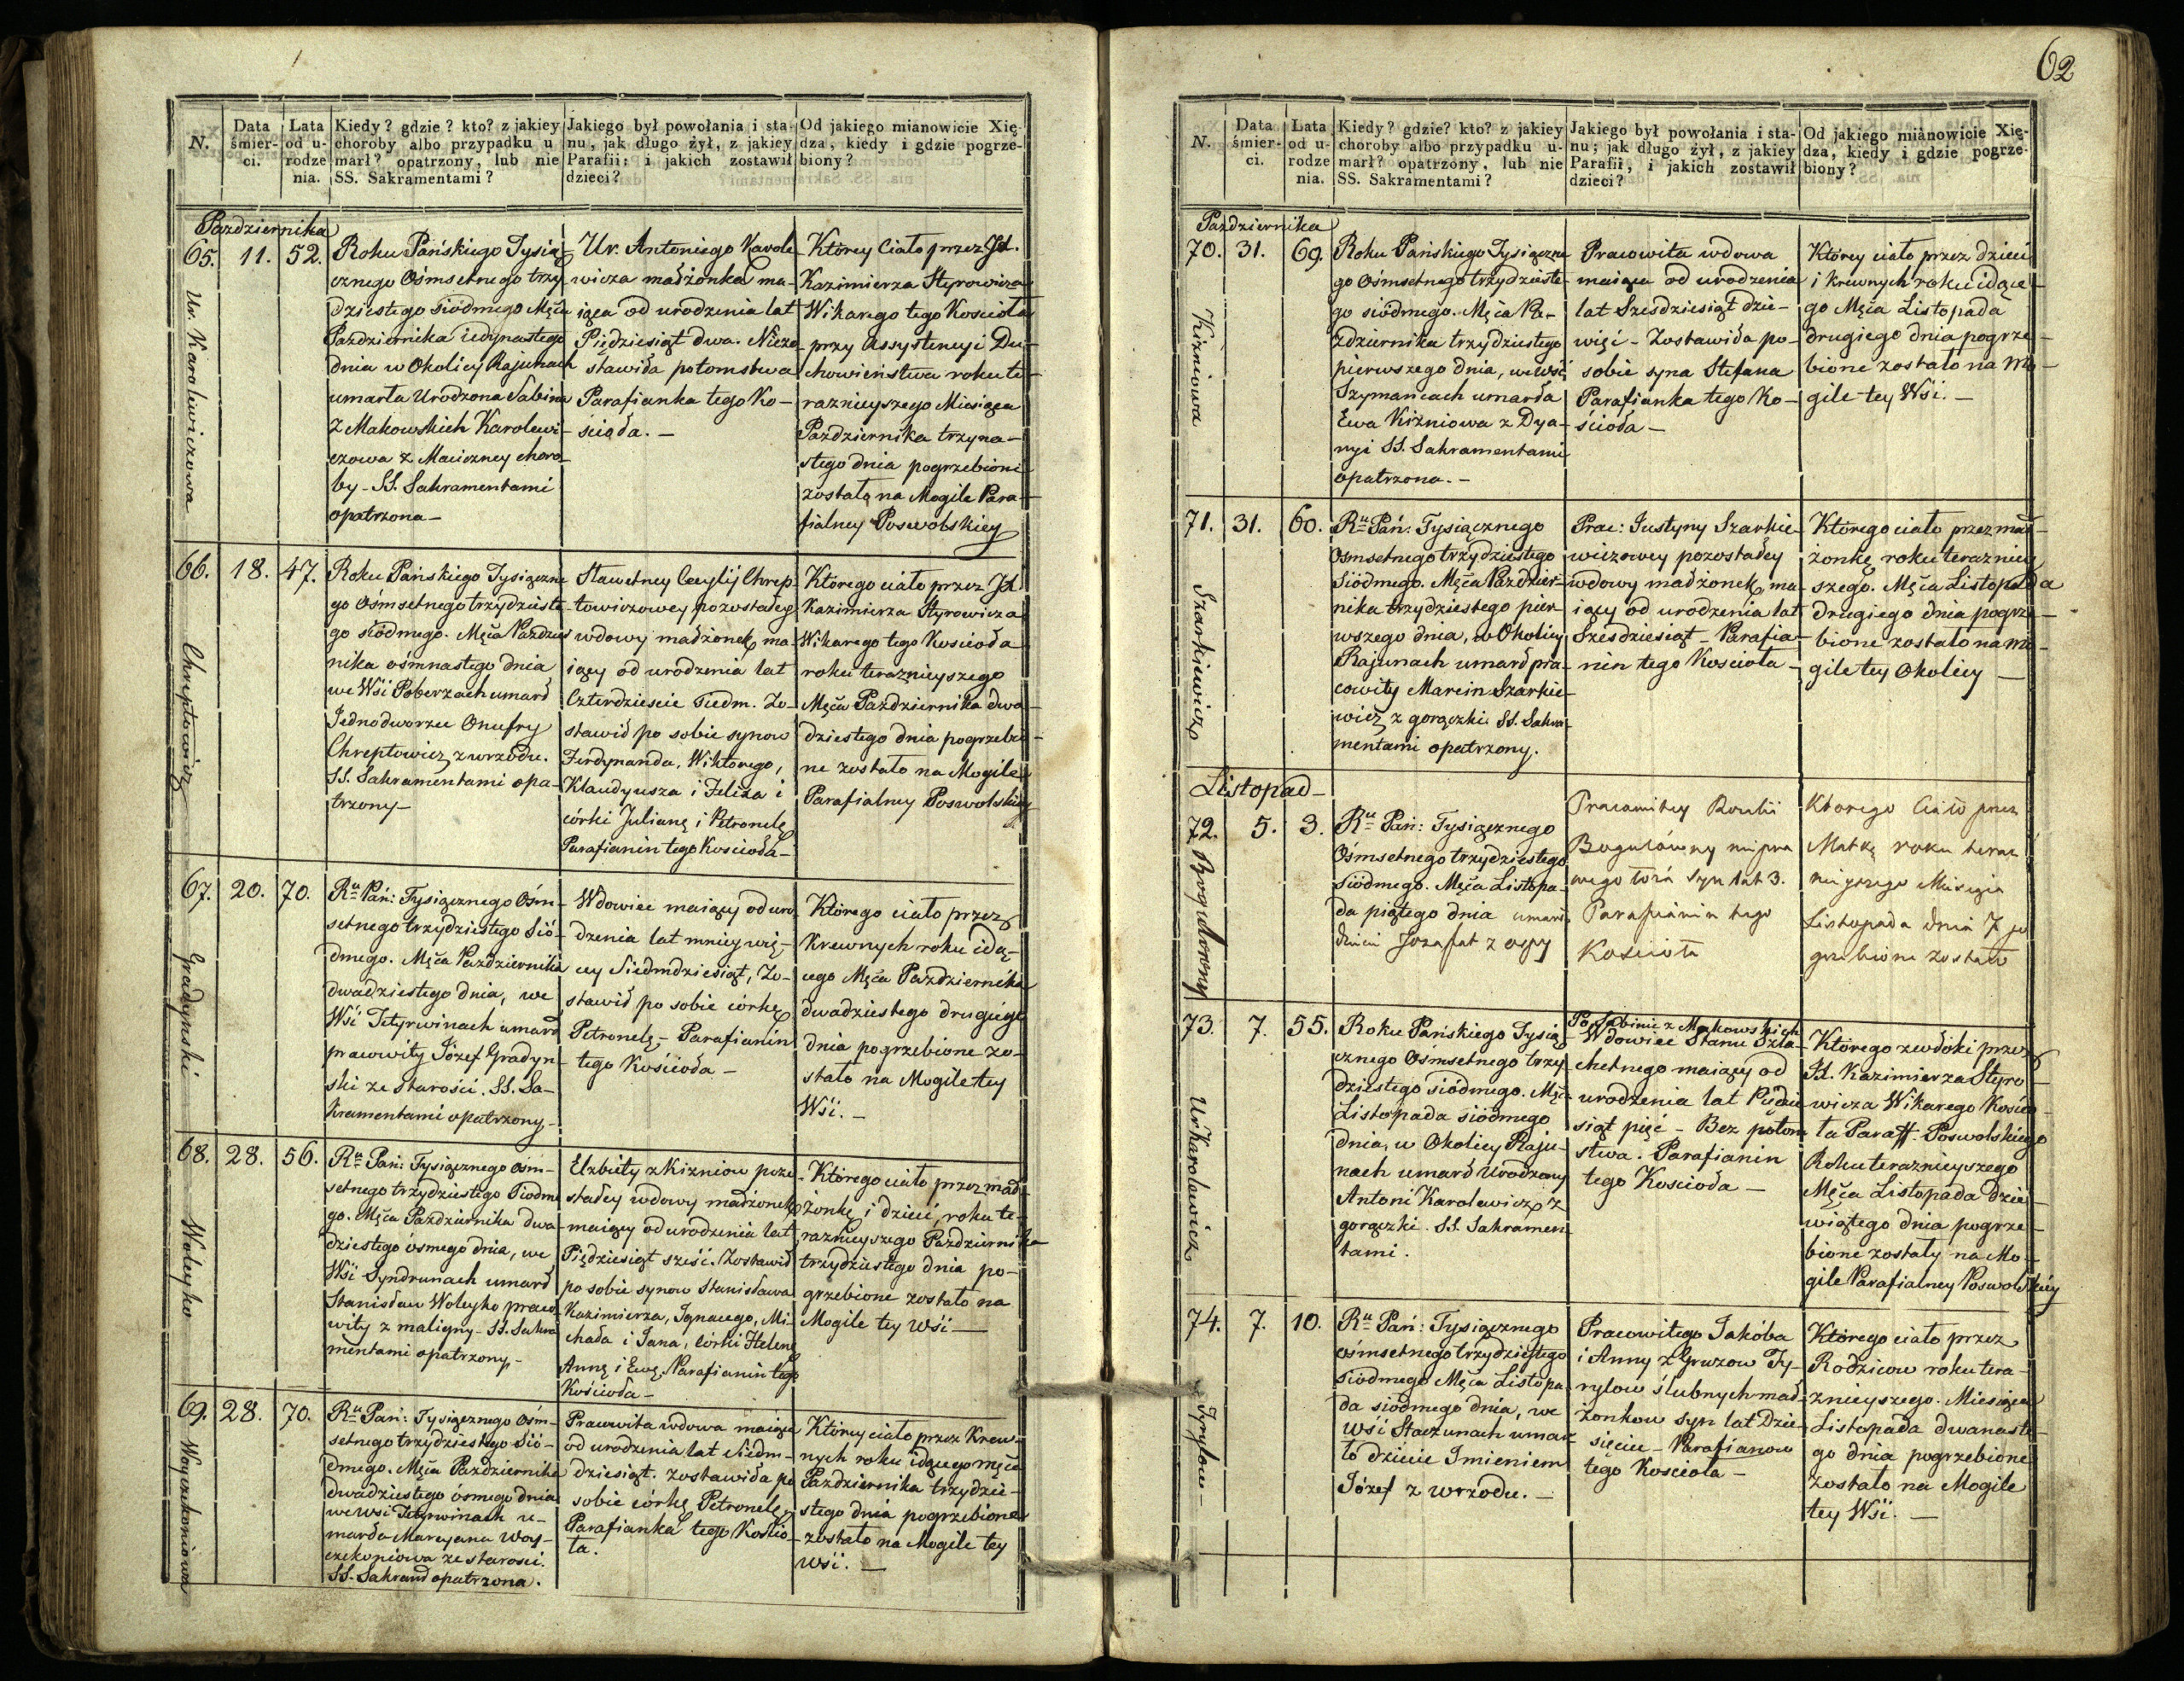 N.
Data śmierci.
Lata od urodzenia.
Kiedy? gdzie? kto? z jakiey
choroby albo przypadku u
marł? opatrzony, lub nie
SS. Sakramentami?
Jakiego był powołania i sta-
nu, jak długo żył, z jakiey
Parafii: i jakich zostawił
dzieci?
Od jakiego mianowicie Xię-
dza, kiedy i gdzie pogrze-
biony?
Pazdziernika
65. 11. 52.
Ur. Karolewiczowa
Roku Pańskiego Tysią-
cznego Ośmsetnego trzy
dziestego siódmego Męca
Pazdziernika iedynastego
dnia w Okolicy Rajunach
umarła Urodzona Sabina
z Makowskich Karolewi-
czowa z Maciczney choro-
by - SS. Sakramentami
opatrzona -
Ur. Antoniego Karole
wicza małżonka ma-
iąca od urodzenia lat
Pięździesiąt dwa. Niezo-
stawiła potomstwa
Parafianka tego Ko-
scioła. -
Którey Ciało przez JX.
Kazimierza Styrowicza
Wikarego tego Kościoła
przy Assystencyi Du-
chowieństwa roku te-
raznieyszego Miesiąca
Pazdziernika trzyna-
stego dnia pogrzebione
zostało na Mogile Para-
fialney Poswolskiey
66. 18. 47.
Chreptowicz
Roku Pańskiego Tysiączne
go Ośmsetnego trzydzieste
go siódmego. Męca Pazdzier
nika ośmnastego dnia
we Wsi Poberzach umarł
Jednodworzec Onufry
Chreptowicz z wrzodu.
SS. Sakramentami opa-
trzony -
Sławetney Cecylij Chrep-
towiczowey pozostałey
wdowy małżonek, ma-
iący od urodzenia lat
Czterdzieście siedm. Zo-
stawił po sobie synow
Ferdynanda, Wiktorego,
Klaudyusza i Felixa i
córki Julianę i Petronelę
Parafianin tego Kościoła -
Którego ciało przez JX.
Kazimierza Styrowicza
Wikarego tego Kościoła
roku teraznieyszego
Męca Pazdziernika dwa-
dziestego dnia pogrzebio-
ne zostało na Mogile
Parafialney Poswolskiey
67. 20. 70.
Gradynski
Ru Pań: Tysiącznego Ośm-
setnego trzydziestego Sió-
dmego. Męca Pazdziernika
dwadziestego dnia, we
Wsi Tetyrwinach umarł
pracowity Józef Gradyn-
ski ze starości. SS. Sa-
kramentami opatrzony -
Wdowiec maiący od uro
dzenia lat mniey wię-
cey Siedmdziesiąt, Zo-
stawił po sobie córkę
Petronelę, - Parafianin
tego Kościoła -
Którego ciało przez
Krewnych roku idą-
cego Męca Pazdziernika
dwadziestego drugiego
dnia pogrzebione zo-
stało na Mogile tey
Wsi. -
68. 28. 56.
Woleyko
Ru Pań: Tysiącznego ośm-
setnego trzydziestego Siódme
go. Męca Pazdziernika dwa-
dziestego ósmego dnia, we
Wsi Syndrunach umarł
Stanisław Woleyko praco
wity z maligny - SS. Sakra
mentami opatrzony -
Elzbiety z Kizniow pozo
stałey wdowy małżonek
maiący od urodzenia lat
Pięździesiąt sześć. Zostawił
po sobie synow Stanisława
Kazimierza, Ignacego, Mi-
chała i Jana, córki Helenę
Annę i Ewę. Parafianin tego
Kościoła -
Którego ciało przez mał-
żonkę i dzieci, roku te-
raznieyszego Pazdziernika
trzydziestego dnia po-
grzebione zostało na
Mogile tey Wsi -
69. 28. 70.
Woyczkoniowa
Ru Pań: Tysiącznego Ośm-
setnego trzydziestego Sió-
dmego. Męca Pazdziernika
dwadziestego ósmego dnia
we wsi Tetyrwinach u-
marła Maryanna Woy-
czekoniowa ze starości.
SS. Sakram opatrzona.
Pracowita wdowa maiąca
od urodzenia lat Siedm-
dziesiąt. zostawiła po
sobie córkę Petronelę,
Parafianka tego Kościo-
ła.
Którey ciało przez Krew-
nych roku idącego męca
Pazdziernika trzydzie-
stego dnia pogrzebione
zostało na Mogile tey
Wsi. -
62
N.
Data śmierci.
Lata od urodzenia.
Kiedy? gdzie? kto? z jakiey
choroby albo przypadku u-
marł? opatrzony, lub nie
SS. Sakramentami?
Jakiego był powołania i sta-
nu; jak długo żył, z jakiey
Parafii, i jakich zostawił
dzieci?
Od jakiego mianowicie Xię-
dza, kiedy i gdzie pogrze-
biony?
Pazdziernika
70. 31. 69.
Kizniowa
Roku Pańskiego Tysiączne
go Ośmsetnego trzydzieste
go siódmego. Męca Pa-
zdziernika trzydziestego
pierwszego dnia, we Wsi
Szymańcach umarła
Ewa Kizniowa z Dya-
ryi SS. Sakramentami
opatrzona. -
Pracowita wdowa
maiąca od urodzenia
lat Sześdziesiąt dzie-
więć - Zostawiła po-
sobie syna Stefana
Parafianka tego Ko-
ścioła -
Którey ciało przez dzieci
i krewnych roku idące-
go Męca Listopada
drugiego dnia pogrze-
bione zostało na Mo-
gile tey Wsi. -
71. 31. 60.
Szarkiewicz
Ru Pań: Tysiącznego
Osmsetnego trzydziestego
Siódmego. Męca Pazdzier-
nika trzydziestego pier-
wszego dnia, w Okolicy
Rajunach umarł pra-
cowity Marcin Szarkie-
wicz z gorączki SS. Sakra-
mentami opatrzony.
Prac: Justyny Szarkie-
wiczowey pozostałey
wdowy małżonek, ma-
iący od urodzenia lat
Sześdziesiąt - Parafia-
nin tego Kościoła -
Którego ciało przez mał-
żonkę roku teraznieg
szego. Męca Listopada
drugiego dnia pogrze-
bione zostało na mo-
gile tey Okolicy -
Listopad -
72. 5. 3.
Bogutowny
Ru Pań: Tysiącznego
Ośmsetnego trzydziestego
Siódmego. Męca Listopa-
da piątego dnia umarł
dziecie Jozafat z ospy
Pracowitey Rozalii
Bogutówny niepra
wego łoża Syn lat 3.
Parafianin tego
Kościoła
Ktorego Ciało przez
Matkę roku teraz
nieyszego Miesiąca
Listopada dnia 7 po
grzebione zostało
73. 7. 55.
Ur Karolewicz
Roku Pańskiego Tysią-
cznego Ośmsetnego trzy
dziestego siódmego. Męca
Listopada siódmego
dnia, w Okolicy Raju-
nach umarł Urodzony
Antoni Karolewicz z
gorączki. SS. Sakramen
tami.
Po Sabinie z Makowskich
- Wdowiec Stanu Szla-
chetnego maiący od
urodzenia lat Pięździe
siąt pięć - Bez potom
stwa. Parafianin
tego Kościoła -
Którego zwłoki przez
JX. Kazimierza Styro-
wicza Wikarego Kościo-
ła Paraff. Poswolskiego
Roku teraznieyszego
Męca Listopada dzie-
wiątego dnia pogrze-
bione zostały na Mo-
gile Parafialney Poswolskiey
74. 7. 10.
Tyrylow -
Ru Pań: Tysiącznego
ośmsetnego trzydziestego
siódmego Męca Listopa
da siódmego dnia, we
Wsi Staczunach umar
ło dziecie Imieniem
Józef z wrzodu. -
Pracowitego Jakóba
i Anny z Gruzow Ty-
rylow ślubnych mał-
żonkow syn lat Dzie-
sięciu - Parafianow
tego Kościoła -
Którego ciało przez
Rodzicow roku tera-
znieyszego. Miesiąca
Listopada dwanaste-
go dnia pogrzebione
zostało na Mogile
tey Wsi. -